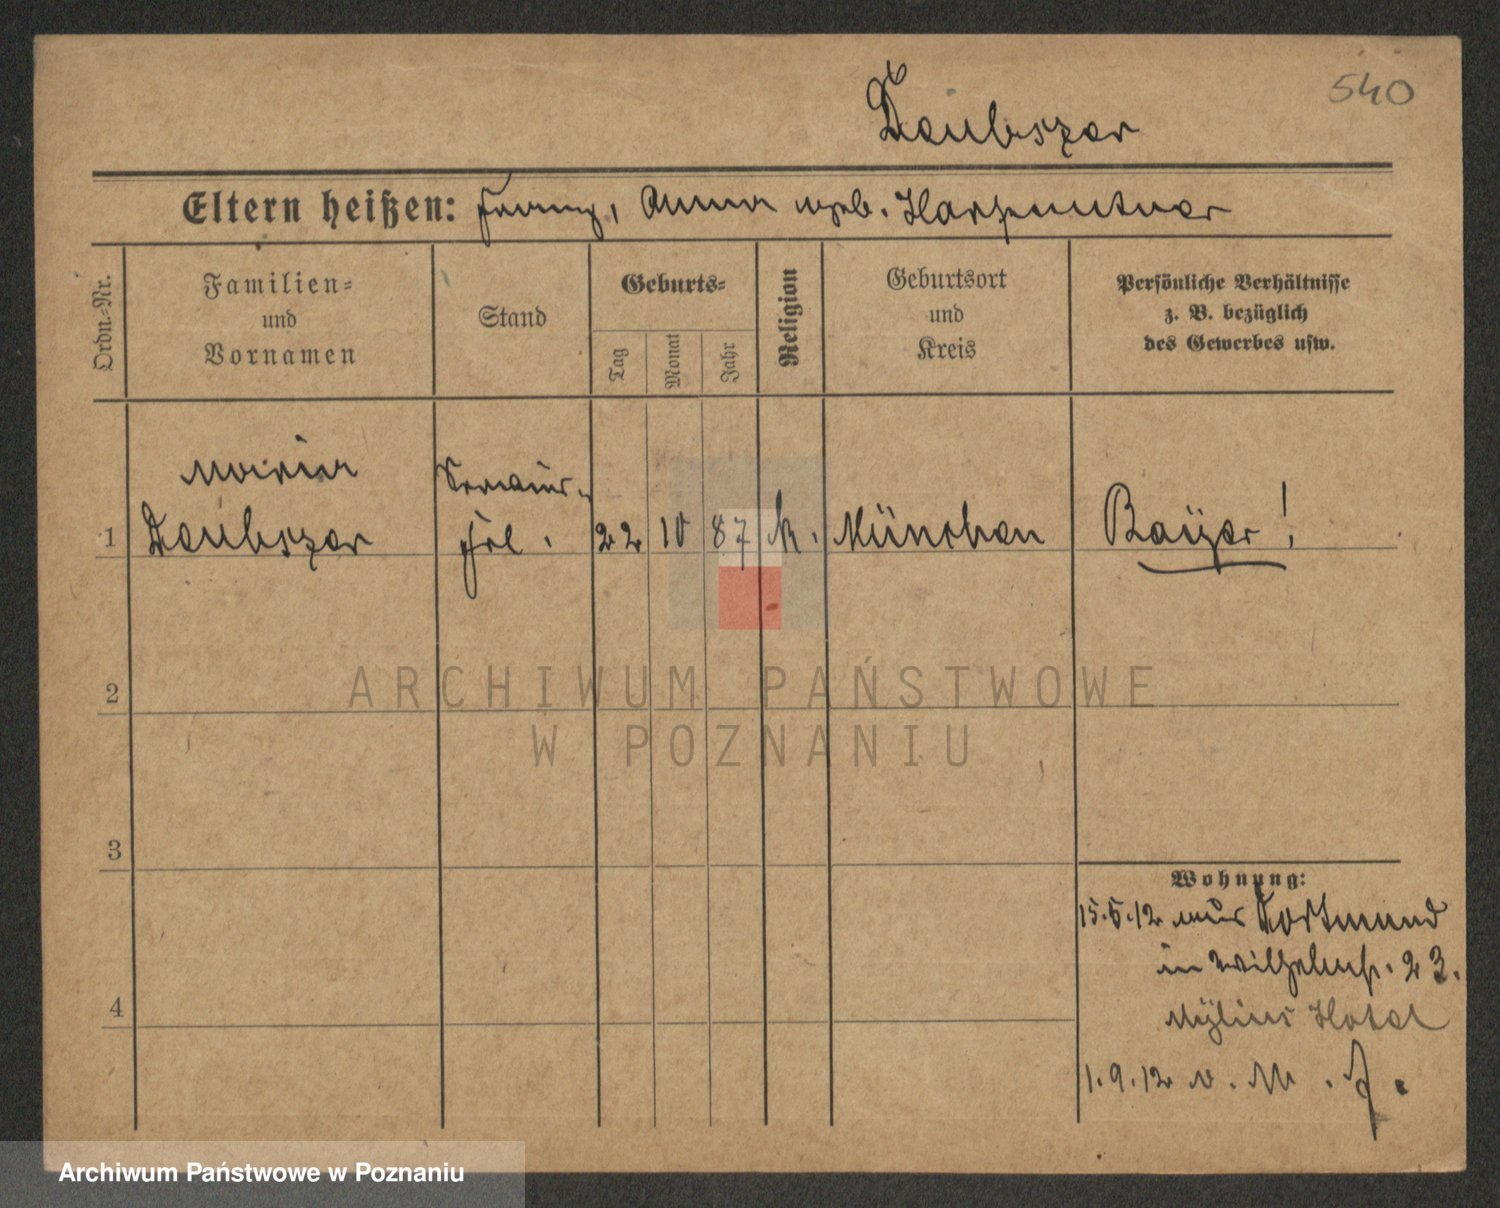 540
Daubszer
Eltern heißen: Franz, Anna geb. Harzenetner
Ordn.-Nr.
Familien-
und
Vornamen
Stand
Geburts-
Tag
Monat
Jahr
Religion
Geburtsort
und
Kreis
Persönliche Verhältnisse
z. B. bezüglich
des Gewerbes usw.
Maria
1 Daubszer
frl. 22 10 87 k. München Bayer!
ARCHIWUM PAŃSTWOWE
W POZNANIU
2
3
4
Wohnung:
15.5.12 aus Dortmund
in Wilhelmst. 23.
Mylius Hotel
1.9.12
Archiwum Państwowe w Poznaniu